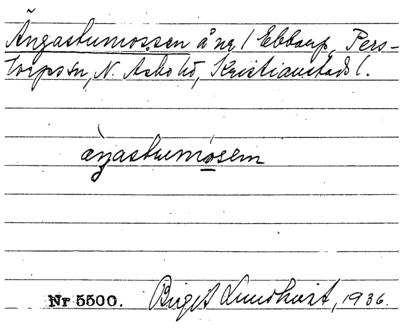 Ängastumossen å nr 1 Ebbarp, Pers-
torps sn, N. Åsbo hd, Kristianstads l.
àŋastumósem
Nr 5500. Birgit Lundkvist, 1936.